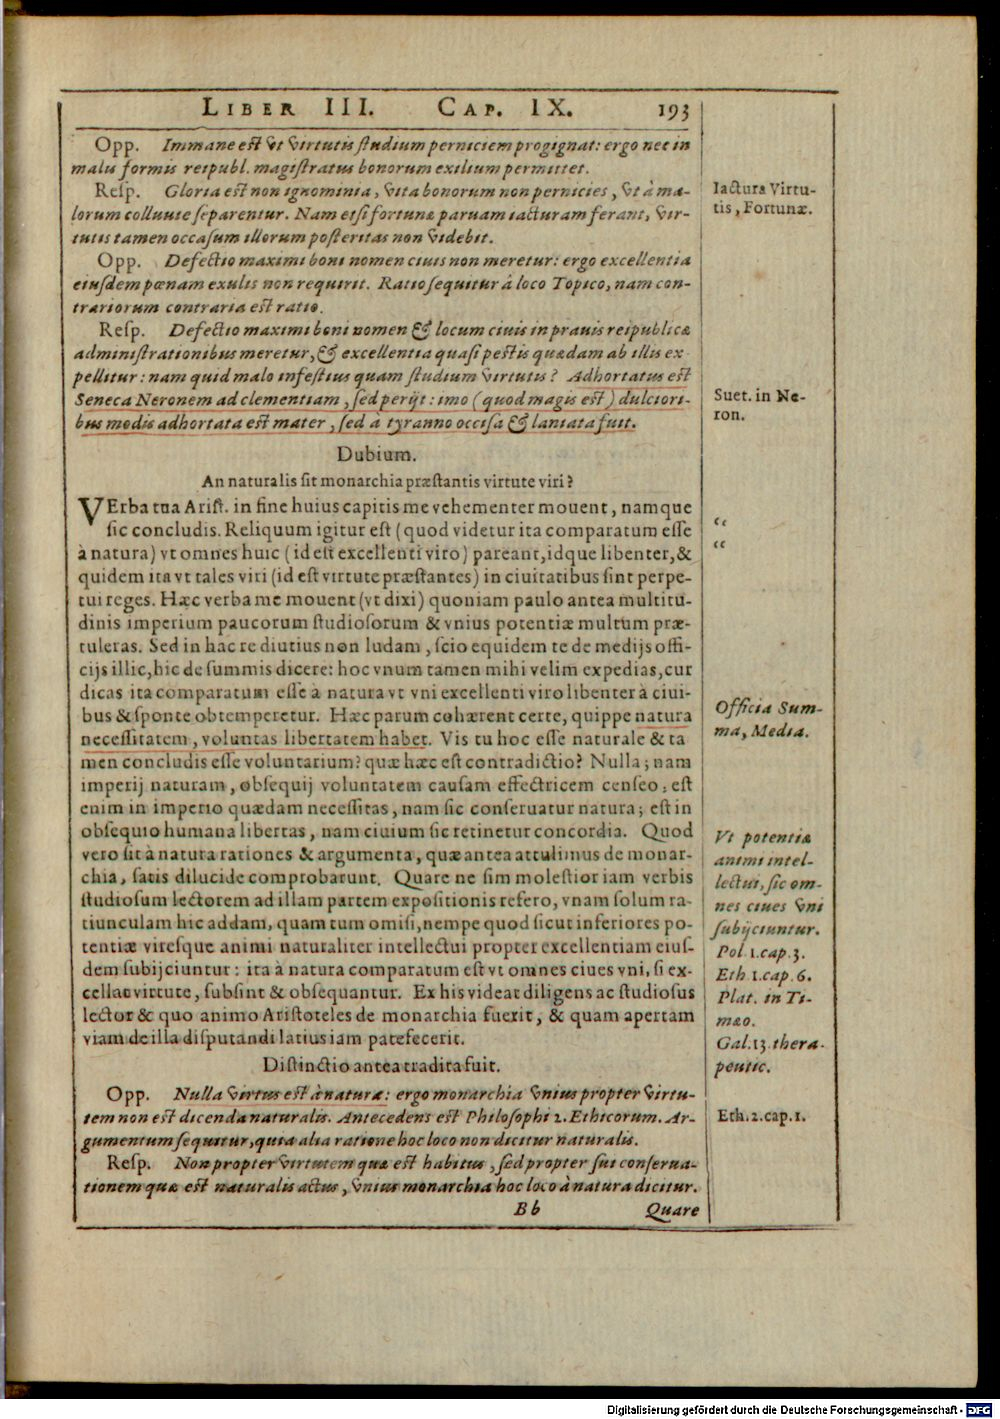 LIBER III. CAP. IX. 193
Opp. Immane est vt virtutis studium perniciem progignat: ergo nec in
malis formis reipubl. magistratus bonorum exilium permittet.
Resp. Gloria est non ignominia, vita bonorum non pernicies, vt à ma-
lorum colluuie separentur. Nam etsi fortunæ paruam iacturam ferant, vir-
tutis tamen occasum illorum posteritas non videbit.
Opp. Defectio maximi boni nomen ciuis non meretur: ergo excellentia
eiusdem pœnam exulis non requirit. Ratio sequitur à loco Topico, nam con-
trariorum contraria est ratio.
Resp. Defectio maximi boni nomen & locum ciuis in prauis reipublicæ
administrationibus meretur, & excellentia quasi pestis quædam ab illis ex-
pellitur: nam quid malo infestius quam studium virtutis? Adhortatus est
Seneca Neronem ad clementiam, sed perijt: imo (quod magis est) dulciori-
bus modis adhortata est mater, sed à tyranno occisa & laniata fuit.
Dubium.
An naturalis sit monarchia præstantis virtute viri?
VErba tua Arist. in fine huius capitis me vehementer mouent, namque
sic concludis. Reliquum igitur est (quod videtur ita comparatum esse
à natura) vt omnes huic (id est excellenti viro) pareant, idque libenter, &
quidem ita vt tales viri (id est virtute præstantes) in ciuitatibus sint perpe-
tui reges. Hæc verba me mouent (vt dixi) quoniam paulo antea multitu-
dinis imperium paucorum studiosorum & vnius potentiæ multum præ-
tuleras. Sed in hac re diutius non ludam, scio equidem te de medijs offi-
cijs illic, hic de summis dicere: hoc vnum tamen mihi velim expedias, cur
dicas ita comparatum esse à natura vt vni excellenti viro libenter à ciui-
bus & sponte obtemperetur. Hæc parum cohærent certe, quippe natura
necessitatem, voluntas libertatem habet. Vis tu hoc esse naturale & ta
men concludis esse voluntarium? quæ hæc est contradictio? Nulla; nam
imperij naturam, obsequij voluntatem causam effectricem censeo: est
enim in imperio quædam necessitas, nam sic conseruatur natura; est in
obsequio humana libertas, nam ciuium sic retinetur concordia. Quod
vero sit à natura rationes & argumenta, quæ antea attulimus de monar-
chia, satis dilucide comprobarunt. Quare ne sim molestior iam verbis
studiosum lectorem ad illam partem expositionis refero, vnam solum ra-
tiunculam hic addam, quam tum omisi, nempe quod sicut inferiores po-
tentiæ viresque animi naturaliter intellectui propter excellentiam eius-
dem subijciuntur: ita à natura comparatum est vt omnes ciues vni, si ex-
cellat virtute, subsint & obsequantur. Ex his videat diligens ac studiosus
lector & quo animo Aristoteles de monarchia fuerit, & quam apertam
viam de illa disputandi latius iam patefecerit.
Distinctio antea tradita fuit.
Opp. Nulla virtus est à natura: ergo monarchia vnius propter virtu-
tem non est dicenda naturalis. Antecedens est Philosophi 2. Ethicorum. Ar-
gumentum sequitur, quia alia ratione hoc loco non dicitur naturalis.
Resp. Non propter virtutem quæ est habitus, sed propter sui conserua-
tionem quæ est naturalis actus, vnius monarchia hoc loco à natura dicitur.
Bb Quare
Iactura Virtu-
tis, Fortunæ.
Suet. in Ne-
ron.
“
“
Officia Sum-
ma, Media.
Vt potentiæ
animi intel-
lectui, sic om-
nes ciues vni
subijciuntur.
Pol. 1. cap. 3.
Eth. 1. cap. 6.
Plat. in Ti-
mæo.
Gal. 13. thera-
peutic.
Eth. 2. cap. 1.
Digitalisierung gefördert durch die Deutsche Forschungsgemeinschaft - DFG